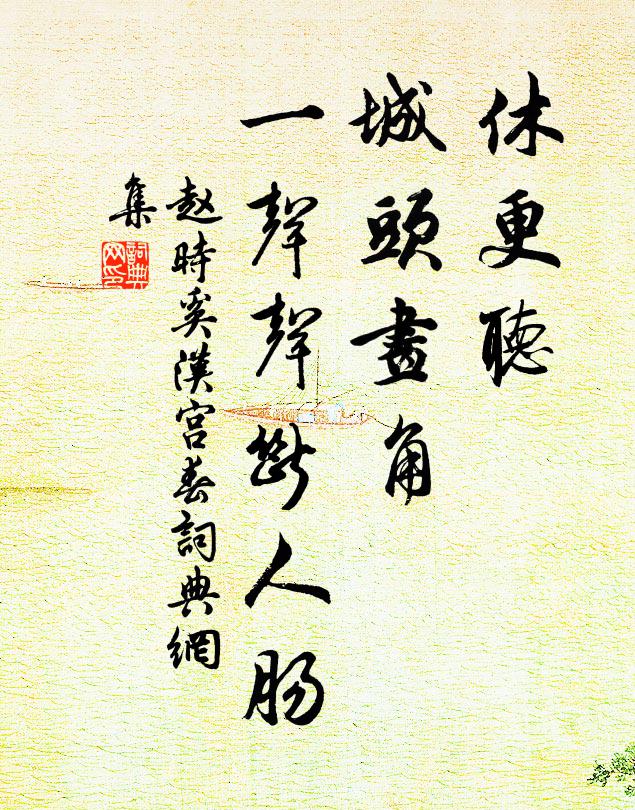 休更聽
城頭畫角
一聲聲斷人腸
赵時奚漢宮春詞典網
集
詞典
网印